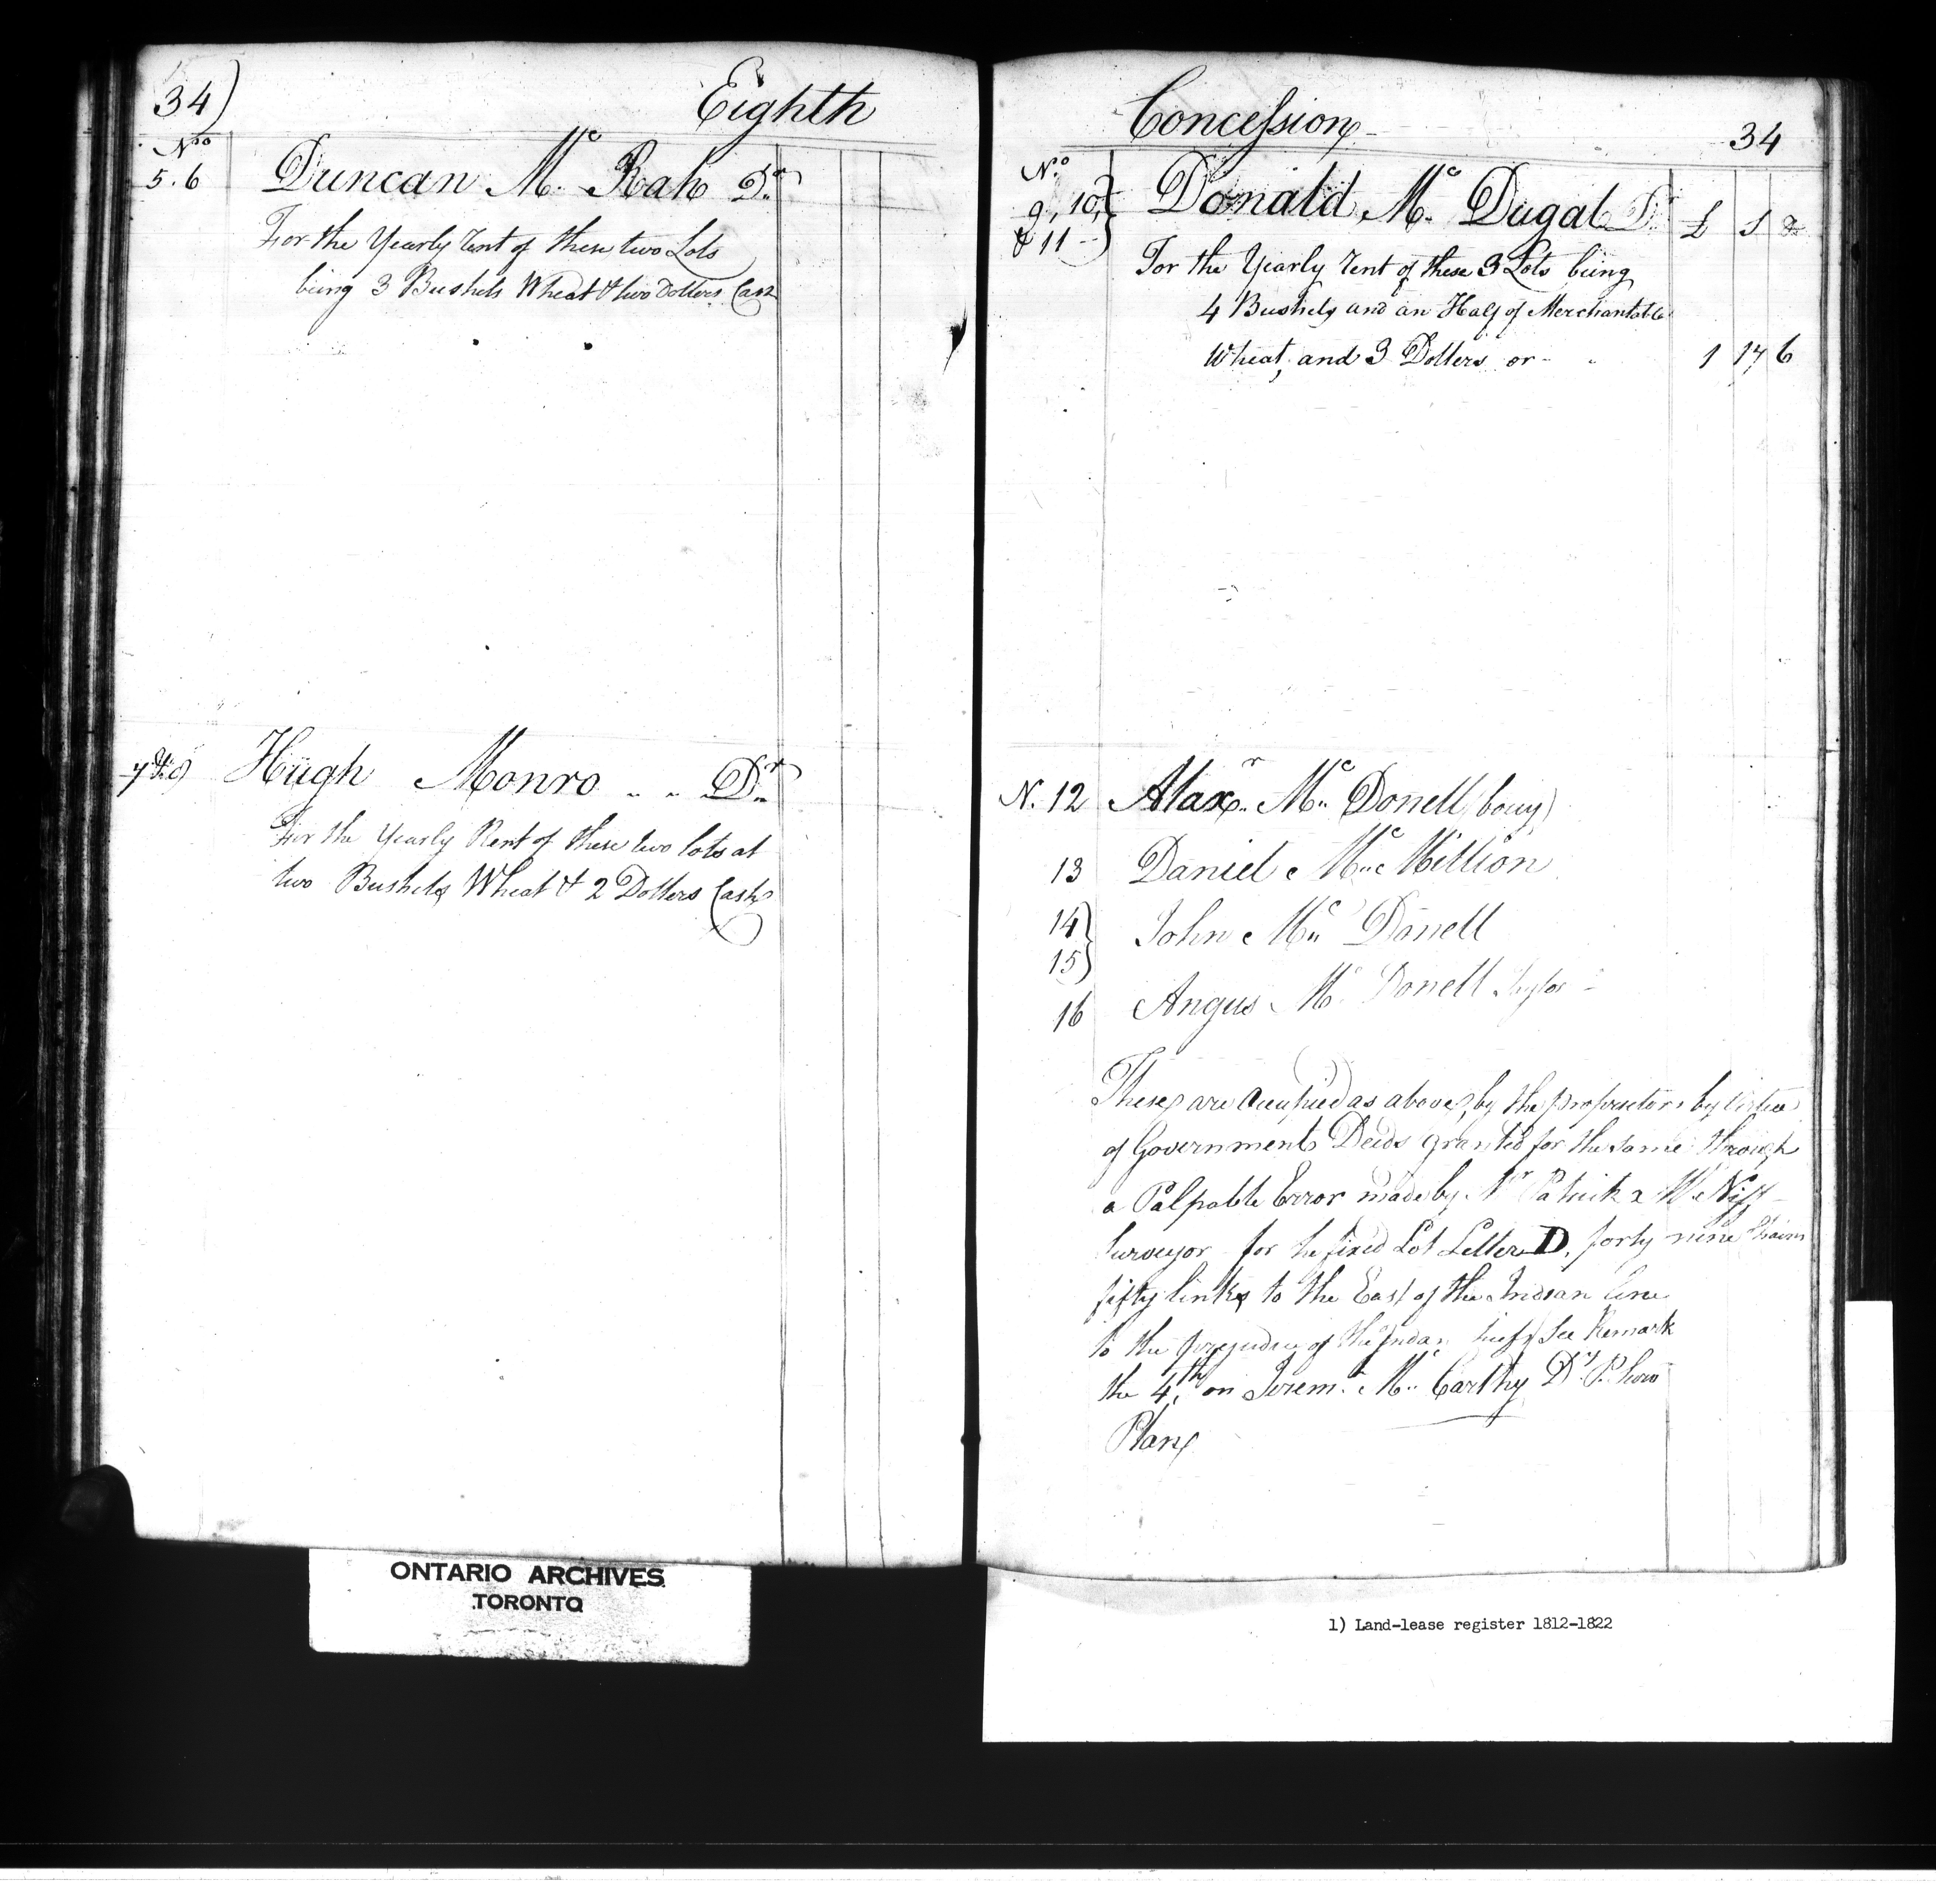 34)
Eighth
Nos
5.6
Duncan Mc Rah Dr
For the Yearly rent of these two Lots
being 3 Bushels Wheat & two Dollers Cash
7 & 8
Hugh Monro Dr
For the Yearly Rent of these two lots at
two Bushels Wheat & 2 Dollers Cash
Concession
34
No
9, 10,
& 11
Donald Mc Dugal Dr
£ S d
For the Yearly rent of these 3 Lots being
4 Bushels and an Half of Merchantable
Wheat, and 3 Dollers or 1 17 6
N. 12 Alaxr Mc Donell
13 Daniel Mc Million
14 John Mc Donell
15
16 Angus Mc Donell Taylor
These are occupied as above, by the proprietors by virtue
of Governments Deeds granted for the same through
a Palpable Error made by Mr Patrick Mc Niff
Surveyor for he fixed Lot Letter D, forty nine Chains
fifty links to the East of the Indian Line
to the prejudice of the See Remark
the 4th on Jerem. Mc Carthy Dy P.
Plan
ONTARIO ARCHIVES
TORONTO
1) Land-lease register 1812-1822